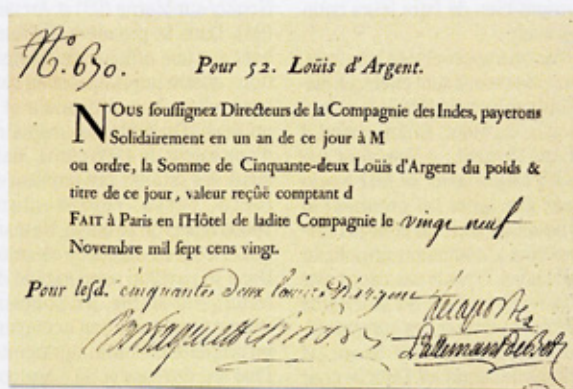 N.º 630.
Pour 52. Loüis d'Argent.
NOus ſouſſignez Directeurs de la Compagnie des Indes, payerons
Solidairement en un an de ce jour à M
ou ordre, la Somme de Cinquante-deux Loüis d'Argent du poids &
titre de ce jour, valeur reçûë comptant d
FAIT à Paris en l'Hôtel de ladite Compagnie le vinge neuf
Novembre mil ſept cens vingt.
Pour leſd. cinquantes deux Louis d'argent
Delaporte